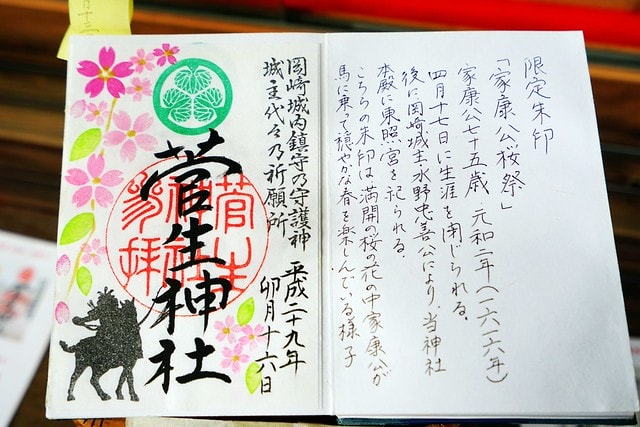 限定朱印
「家康公桜祭」
家康公七十五歳 元和二年(一六一六年)
四月十七日に生涯を閉じられる。
後に岡崎城主水野忠善公により、当神社
本殿に東照宮を祀られる。
こちらの朱印は満開の桜の花の中家康公が
馬に乗って穏やかな春を楽しんでいる様子
岡崎城内鎮守乃守護神
城主代々乃祈願所
平成二十九年
卯月十六日
菅生神社
菅生
神社
参拝